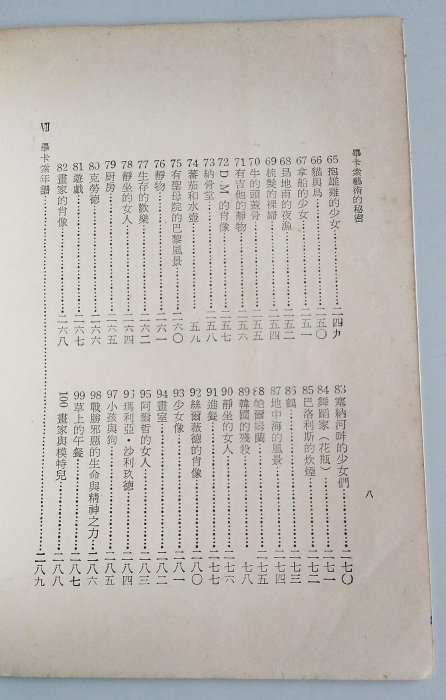 畢卡索藝術的秘密
65 抱雄雞的少女……二四九
66 貓與鳥……二五〇
67 拿船的少女……二五一
68 昂地甫的夜漁……二五二
69 梳髮的裸婦……二五三
70 牛的頭蓋骨……二五五
71 有吉他的靜物……二五六
72 D.M.的肖像……二五七
73 納骨堂……二五八
74 蕃茄和水壺……五九
75 有聖母院的巴黎風景……二六〇
76 靜物……二六一
77 生存的歡樂……二六二
78 靜坐的女人……二六四
79 廚房……二六五
80 克勞德……二六六
81 遊戲……二六七
82 畫家的肖像……二六八
83 塞納河畔的少女們……二七〇
84 舞蹈家（花瓶）……二七一
85 巴洛利斯的炊煙……二七二
86 鶴……二七三
87 地中海的風景……二七四
88 帕爾蒔蘭……二七五
89 韓國的殘殺……七八
90 靜坐的女人……二七六
91 進餐……二七七
92 絲爾薇德的肖像……二八〇
93 少女像……二八一
94 畫室……二八二
95 阿爾哲的女人……二八三
96 瑪利亞・沙利玖德……二八四
97 小孩與狗……二八五
98 戰勝邪惡的生命與精神之力……二八六
99 草上的午餐……二八七
100 畫家與模特兒……二八八
VII 畢卡索年譜……二八九
八